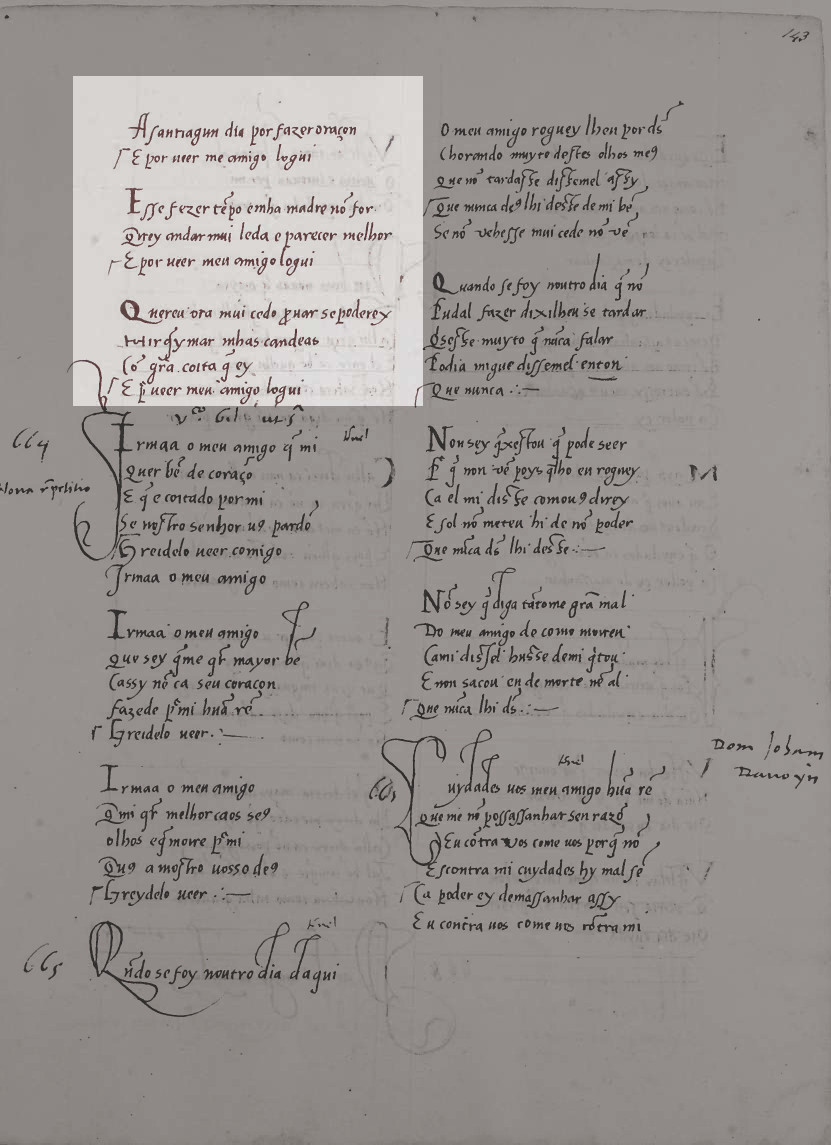 143
A santiagun dia por fazer oraçon
E por ueer me amigo logui
Esse fezer tẽpo emha madre nõ for
Querey andar mui leda e parecer melhor
E por ueer meu amigo logui
Quereu ora mui cedo ꝓuar se poderey
mar mhas candeas
Cõ grã coita q̃ ey
E p̃ ueer meu amigo logui
664
Irmaa o meu amigo q̃ mi
Quer bẽ de coraço
E q̃ e coitado por mi
Se nostro senhor uꝯ pardõ
Greidelo ueer comigo
Irmaa o meu amigo
Irmaa o meu amigo
Que sey q̃ me qr̃ mayor bẽ
Cassy nõ ca seu coraçon
fazede p̃ mi huã rẽ
Greidelo ueer
Irmaa o meu amigo
Q̃ mi qr̃ melhor caos seꝯ
olhos e q̃ morre p̃ mi
Quꝯ amostro uosso deꝯ
Greydelo ueer
665
Qñdo se foy noutro dia daqui
O meu amigo roguey lheu por ds̃
Chorando muyto destes olhos meꝯ
Que nõ tardasse dissemel assy
Que nunca deꝯ lhi desse de mi bẽ
Se nõ vehesse mui cedo nõ vẽ
Quando se foy noutro dia q̃ nõ
Pudal fazer dixilheu se tardar
Q̃sesse muyto q̃ nũca falar
Podia migue dissemel enton
Que nunca
Non sey q̃ xestou q̃ pode seer
P̃ q̃ non vẽ poys q̃lho eu roguey
Ca el mi disse como uꝯ direy
E sol nõ meteu hi de nõ poder
Que nũca ds̃ lhi desse
M
Nõ sey q̃ diga tãtome grã mal
Do meu amigo de como morreu
Cami dissel husse demi q̃tou
E non sacou en de morte nẽ al
Que nũca lhi ds̃
Dom Joham
Dauoyn
Cuydades uos meu amigo huã rẽ
Que me nõ possassanhar sen razõ
Eu cõtra uos come uos porq̃ nõ
Escontra mi cuydades hy mal sẽ
Ca poder ey demassanhar assy
Eu contra uos come uos cõtra mi